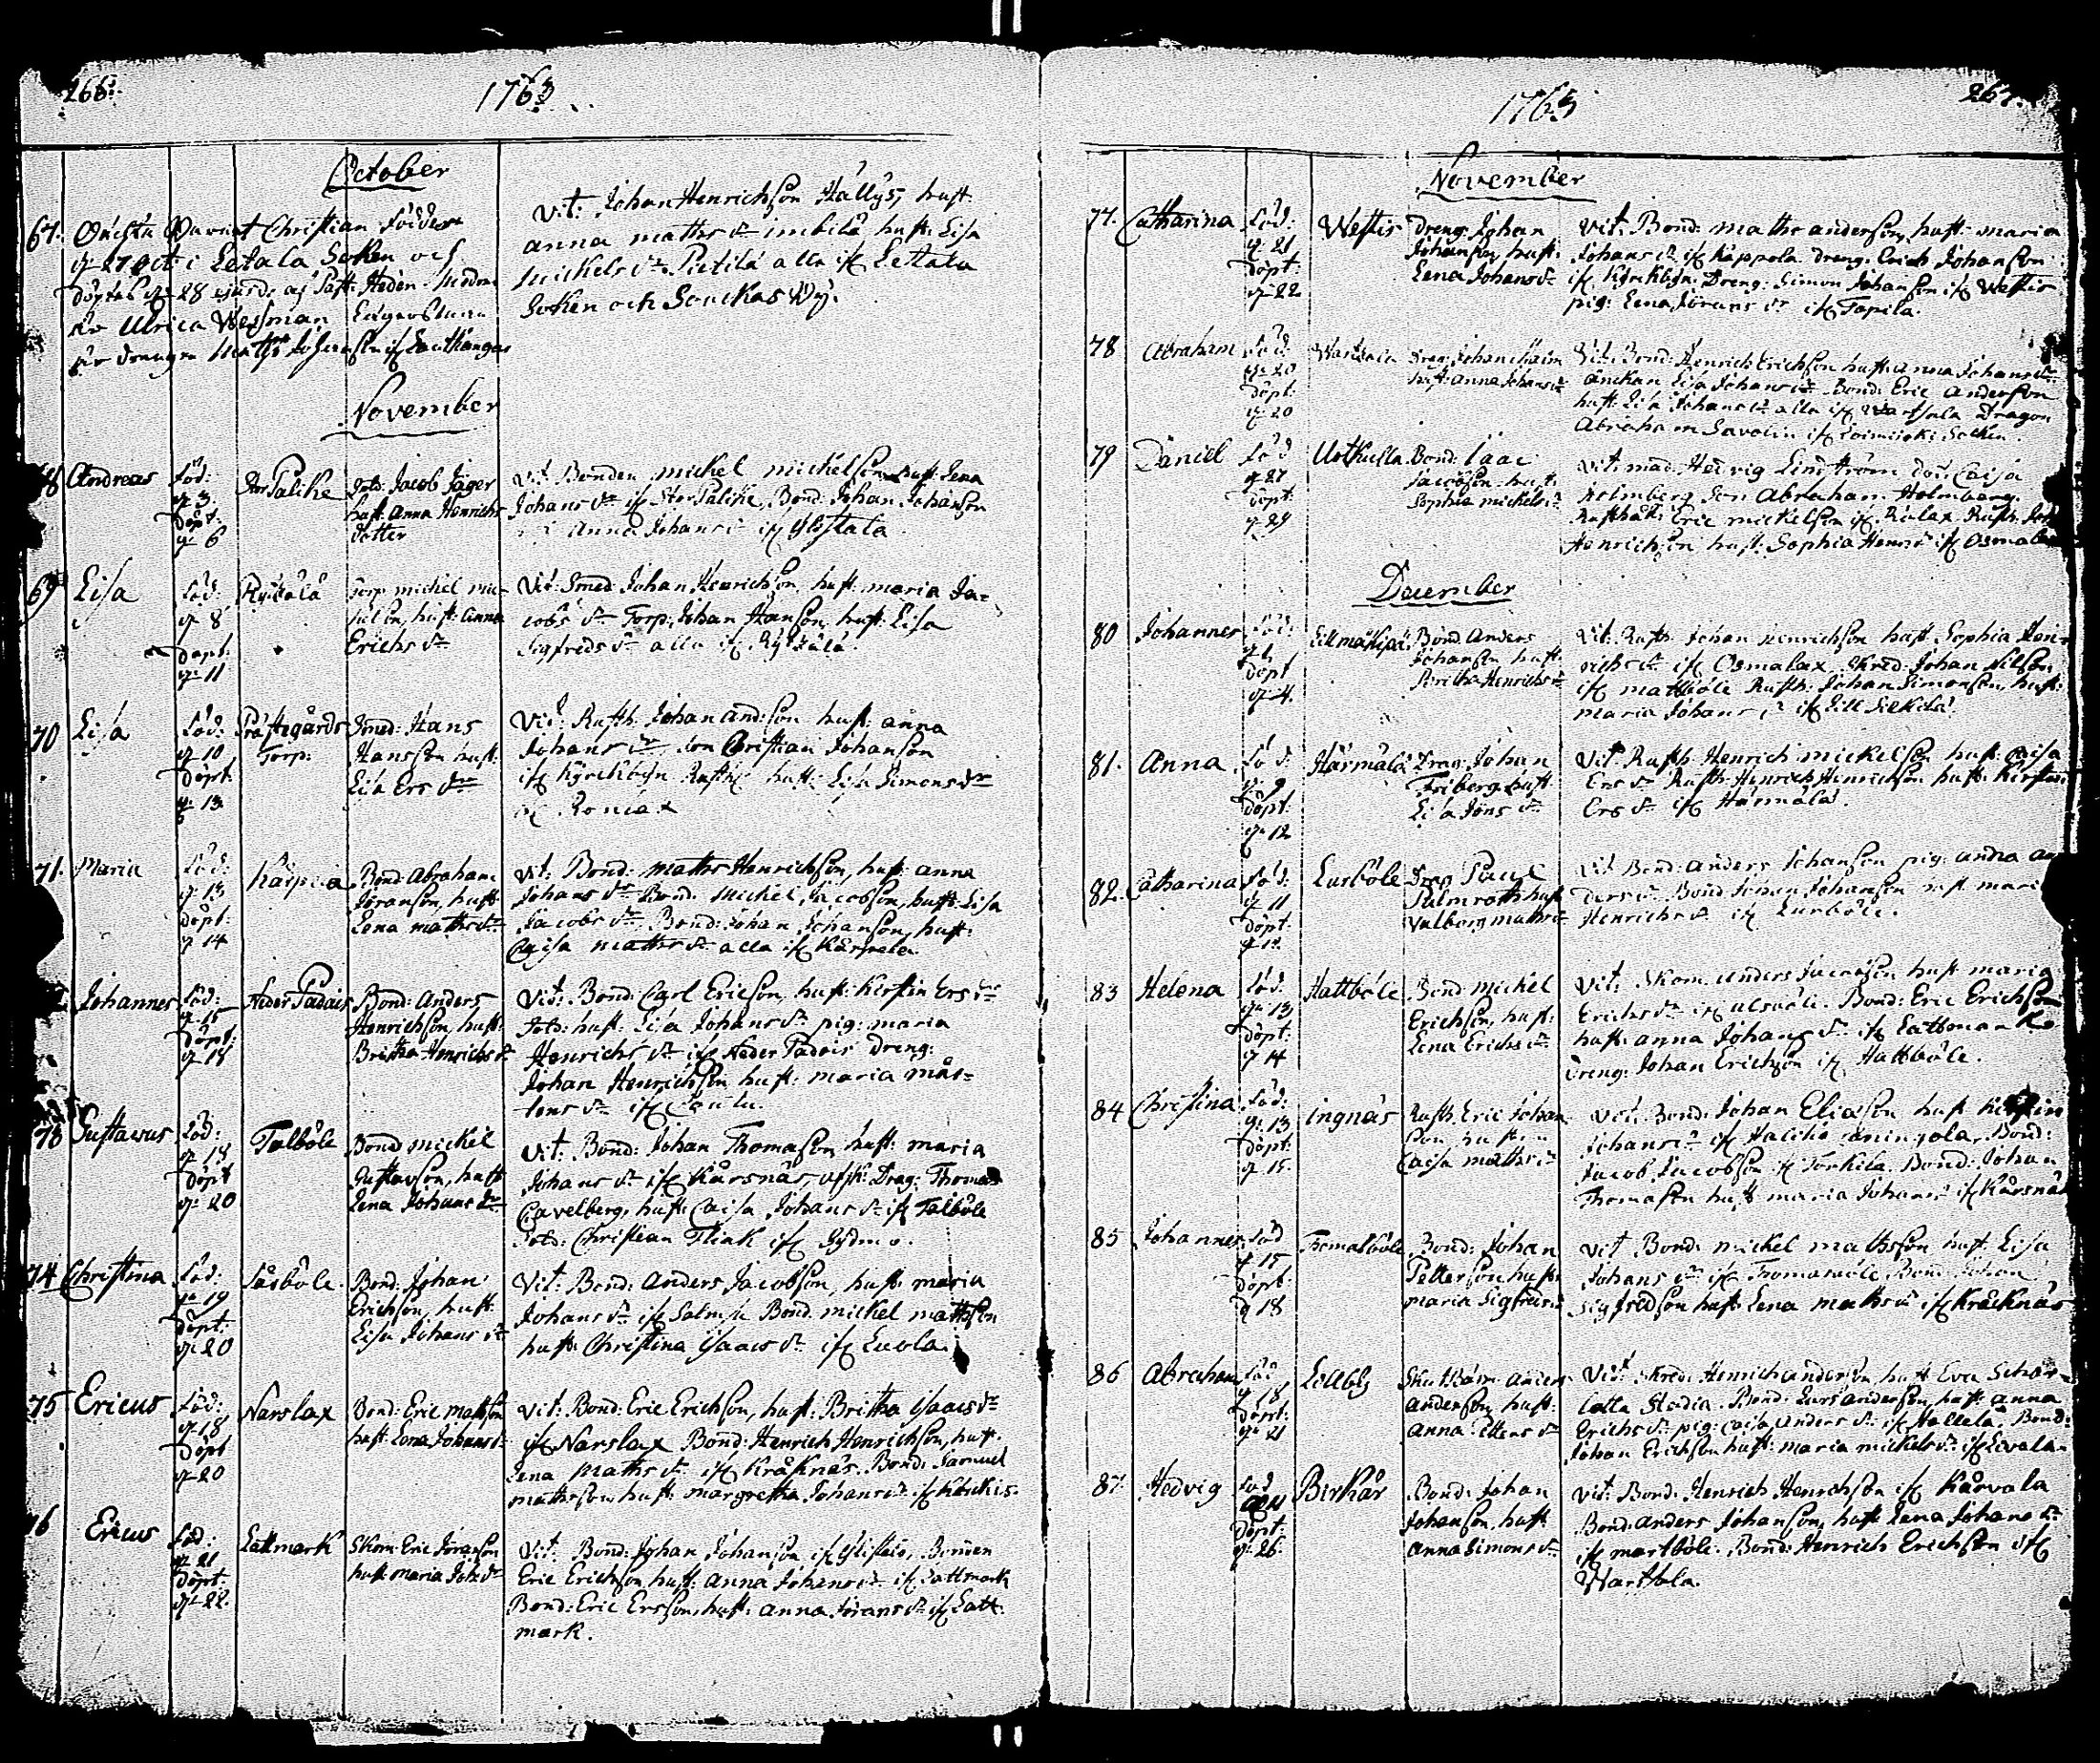 266.
1763
October
67. Oäckta Barnet Christian föddes
d. 27 Oct. i Letala Soken och
döptes d. 28 ejusd. af Past. Heden. Modren
är Ulrica Wessman
är drengen Matts Johansson
Vit: Johan Henrichson Hällys, hust.
anna maths dr hust: Lisa
Mickels dr alla if. Letala
Soken och Souckas By.
November
68 Andreas
föd:
d. 3.
döpt:
d. 6
Stor Palike
Sold: Jacob Jäger
hust: Anna Henrichs
dotter
Vit: Bonden mickel mickelson hust: Lena
Johans dr if Stor Palike, Bond: Johan Johanson
Anna Johans dr if
69 Lisa
föd:
d. 8
döpt:
d. 11
Torp: mickel mic-
kelson, hust: Anna
Erichs dr
Vit: Smed Johan Henrichson, hust: maria Ja-
cobs dr Torp: Johan Hanson, hust: Lisa
Sigfreds dr alla if.
70 Lisa
föd:
d. 10
döpt:
d. 13
Prästegårds
Torp:
Smed: Hans
Hansson hust:
Lisa Ers dr
Vit: Rusth: Johan And:son hust: anna
Johans dr, son Christian Johanson
if Kyrckbyn Rusth: hust: Lisa Simons dr
71. Maria
föd:
d. 13
döpt:
d. 14
Bond: Abraham
Jöranson, hust:
Lena maths dr
Vit: Bond: maths Henrichson, hust: anna
Johans dr Bond: Mickel Jacobson, hust: Lisa
Jacobs dr Bond: Johan Johanson, hust:
Caisa maths dr alla if
Johannes
föd:
d. 15
döpt:
d. 18
Neder Padais
Bond: Anders
Henrichson, hust:
Britha Henrichs dr
Vit: Bond: Carl Ericson, hust: Kirstin Ers dr
Sold: hust: Lisa Johans dr pig: maria
Henrichs dr if Neder Padais Dreng:
Johan Henrichson hust: maria mår-
tens dr if
73 Gustavus
föd:
d. 18
döpt
d. 20
Talböle
Bond mickel
Gustavson, hust
Lena Johans dr
Vit: Bond: Johan Thomason, hust: maria
Johans dr if Kårsnäs, Afsk: Drag: Thomas
Cavelberg, hust: Caisa Johans dr if Talböle
Sold: Christian Flink if
74 Christina
föd:
d. 19
döpt:
d. 20
Bond: Johan
Erichson, hust:
Lisa Johans dr
Vit: Bond: Anders Jacobson, hust: maria
Johans dr if Bond: mickel mathson
hust: Christina Isaacs dr if
75 Ericus
föd:
d. 18
döpt
d. 20
Narslax
Bond: Eric mathson
hust: Lena Johans dr
Vit: Bond: Eric Erichson, hust: Britha Isaacs dr
if Narslax Bond: Henrich Henrichson, hust:
Lena maths dr if Kråknäs. Bond: Samuel
mathsson, hust: margretha Johans dr if
Ericus
föd:
d. 21
döpt:
d. 22.
Lättmark
Skom: Eric Jöranson
hust: maria Joh: dr
Vit: Bond: Johan Johanson if Bonden
Eric Erichson, hust: anna Johans dr if Lattmark
Bond: Eric Ersson, hust: anna Jörans dr if Latt-
mark.
267.
1763
November
77. Catharina
föd:
d. 21
döpt:
d. 22
Westir
Dreng: Johan
Johanson, hust:
Lena Johans dr
Vit: Bond: maths anderson, hust: maria
Johans dr if Käppola. Dreng: Erich Johanson
if Kyrckbyn. Dreng: Simon Johanson if Westir
pig: Lena Jörans dr if Tapila.
78 Abraham
föd:
d. 20
döpt:
d. 20
Drag: Johan
hust: Anna Johans dr
Vit: Bond: Henrich Erichson hust: Anna Johans dr
änckan Lisa Johans dr. Bond: Eric anderson
hust: Lisa Johans dr alla if Wartsala Dragon
Abraham Savolin if Loimijoki Socken.
79 Daniel
föd
d. 27
döpt:
d. 29
Uotkulla
Bond: Isac
Jacobson hust:
Sophia mickels dr
Vit: mad: Hedvig Lindström dott: Caisa
Holmberg Son Abraham Holmberg.
Rusthåll: Eric mickelson if Rulax, Rusth: Joh
Henrichson hust: Sophia Henrs dr if Osmalax
December
80 Johannes
föd:
döpt
d. 4.
Bond: Anders
Johanson hust:
Britha Henrichs dr
Vit: Rusth: Johan Henrichson hust: Sophia Hen-
richs dr if Osmalax. Skred: Johan Nilson
if mattböle Rusth: Johan Simonson, hust:
maria Johans dr if
81. Anna
föd:
d. 9
döpt:
d. 12
Härmälä
Drag: Johan
Friberg hust:
Lisa Jöns dr
Vit: Rusth: Henrich mickelson hust: Caisa
Ers dr Rusth: Henrich Henrichson hust: Kirstin
Ers dr if Härmälä.
82. Catharina
föd:
d. 11
döpt:
Lurböle
Drag: Paul
Palmroth hust:
Valborg maths dr
Vit: Bond: anders Johanson pig: anna an-
ders dr. Bond Johan Johanson hust maria
Henrichs dr if Lurböle.
83 Helena
föd:
d. 13
döpt:
d. 14
Hattböle
Bond: mickel
Erichson, hust:
Lena Erichs dr
Vit: Skom: anders Jacobson hust: maria
Erichs dr if Bond: Eric Erichson
hust: anna Johans dr if
Dreng: Johan Erichson if Hattböle.
84 Christina
föd:
d. 13
döpt:
d. 15.
ingnäs
Rusth: Eric Johan
son hust:
Caisa maths dr
Vit: Bond: Johan Eliason hust: Kirstin
Johans dr if Bond:
Jacob Jacobson if Torkila. Bond: Johan
Thomason hust: maria Johans dr if Kårsnäs
85 Johannes
föd
d. 15
döpt:
d. 18
Thomasböle
Bond: Johan
Petterson hust:
maria Sigfreds dr
Vit Bond: mickel mathsson hust: Lisa
Johans dr if Thomasböle Bond: Johan
Sigfredson hust: Lena maths dr if Kråcknäs
86 Abraham
föd
d. 18
döpt:
d. 21
Anders
Anderson, hust:
Anna Petters dr
Vit: Skred: Henrich anderson, hust: Eva Schar-
lotta Stadia. Bond: Lars anderson, hust: anna
Erichs dr, pig: Caisa anders dr if Hallela. Bond:
Johan Erichson hust: maria mickels dr if Levala.
87. Hedvig
föd
döpt:
d. 26
Birkår
Bond: Johan
Johanson, hust:
anna Simons dr
Vit: Bond: Henrich Henrichson if Kårvala
Bond: anders Johanson, hust: Lena Johans dr
if martböle. Bond: Henrich Erichson if
Wartsala.